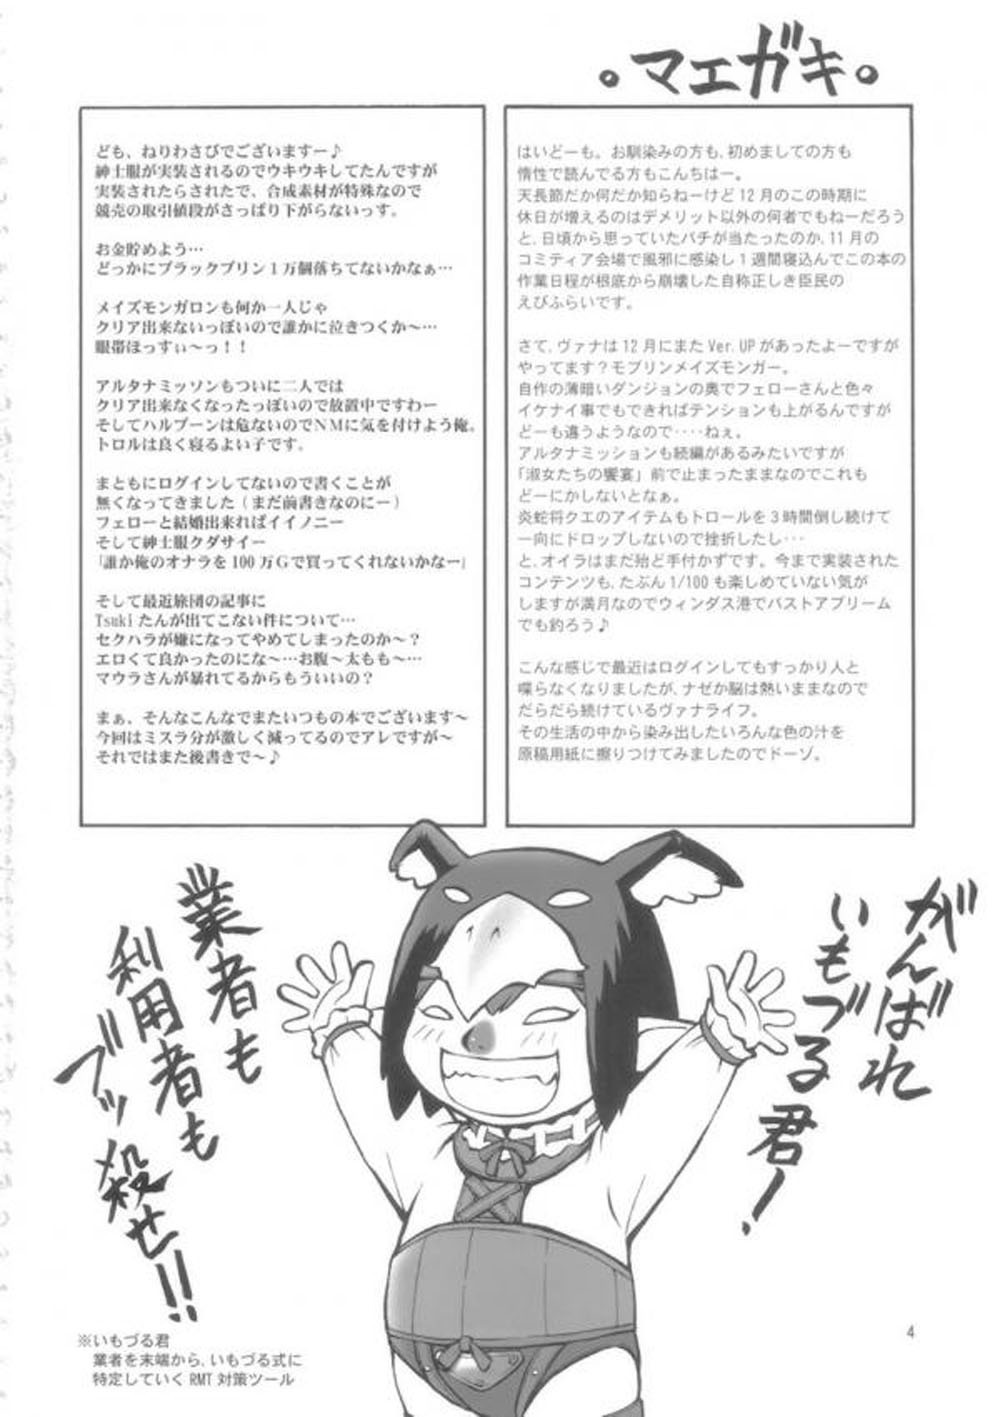 。マエガキ。
はいどーも。お馴染みの方も、初めましての方も
惰性で読んでる方もこんちはー。
天長節だか何だか知らねーけど12月のこの時期に
休日が増えるのはデメリット以外の何者でもねーだろう
と、日頃から思っていたバチが当たったのか、11月の
コミティア会場で風邪に感染し1週間寝込んでこの本の
作業日程が根底から崩壊した自称正しき臣民の
えびふらいです。
さて、ヴァナは12月にまたVer.UPがあったよーですが
やってます？モブリンメイズモンガー。
自作の薄暗いダンジョンの奥でフェローさんと色々
イケナイ事でもできればテンションも上がるんですが
どーも違うようなので････ねぇ。
アルタナミッションも続編があるみたいですが
「淑女たちの饗宴」前で止まったままなのでこれも
どーにかしないとなぁ。
炎蛇将クエのアイテムもトロールを３時間倒し続けて
一向にドロップしないので挫折したし･･･
と、オイラはまだ殆ど手付かずです。今まで実装された
コンテンツも、たぶん1/100も楽しめていない気が
しますが満月なのでウィンダス港でバストアブリーム
でも釣ろう♪
こんな感じで最近はログインしてもすっかり人と
喋らなくなりましたが、ナゼか脳は熱いままなので
だらだら続けているヴァナライフ。
その生活の中から染み出したいろんな色の汁を
原稿用紙に擦りつけてみましたのでドーゾ。
ども、ねりわさびでございますー♪
紳士服が実装されるのでウキウキしてたんですが
実装されたらされたで、合成素材が特殊なので
競売の取引値段がさっぱり下がらないっす。
お金貯めよう…
どっかにブラックプリン１万個落ちてないかなぁ…
メイズモンガロンも何か一人じゃ
クリア出来ないっぽいので誰かに泣きつくか～…
眼帯ほっすぃ～っ！！
アルタナミッソンもついに二人では
クリア出来なくなったっぽいので放置中ですわー
そしてハルブーンは危ないのでＮＭに気を付けよう俺。
トロルは良く寝るよい子です。
まともにログインしてないので書くことが
無くなってきました（まだ前書きなのにー）
フェローと結婚出来ればイイノニー
そして紳士服クダサイー
「誰か俺のオナラを100万Ｇで買ってくれないかなー」
そして最近旅団の記事に
Tsukiたんが出てこない件について…
セクハラが嫌になってやめてしまったのか～？
エロくて良かったのにな～…お腹～太もも～…
マウラさんが暴れてるからもういいの？
まぁ、そんなこんなでまたいつもの本でございます～
今回はミスラ分が激しく減ってるのでアレですが～
それではまた後書きで～♪
がんばれ
いもづる君！
業者も
利用者も
ブッ殺せ!!
※いもづる君
業者を末端から、いもづる式に
特定していくRMT対策ツール
4